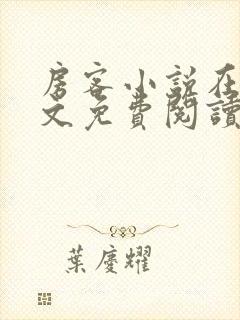 房客小说在
文免費閱讀
葉慶耀